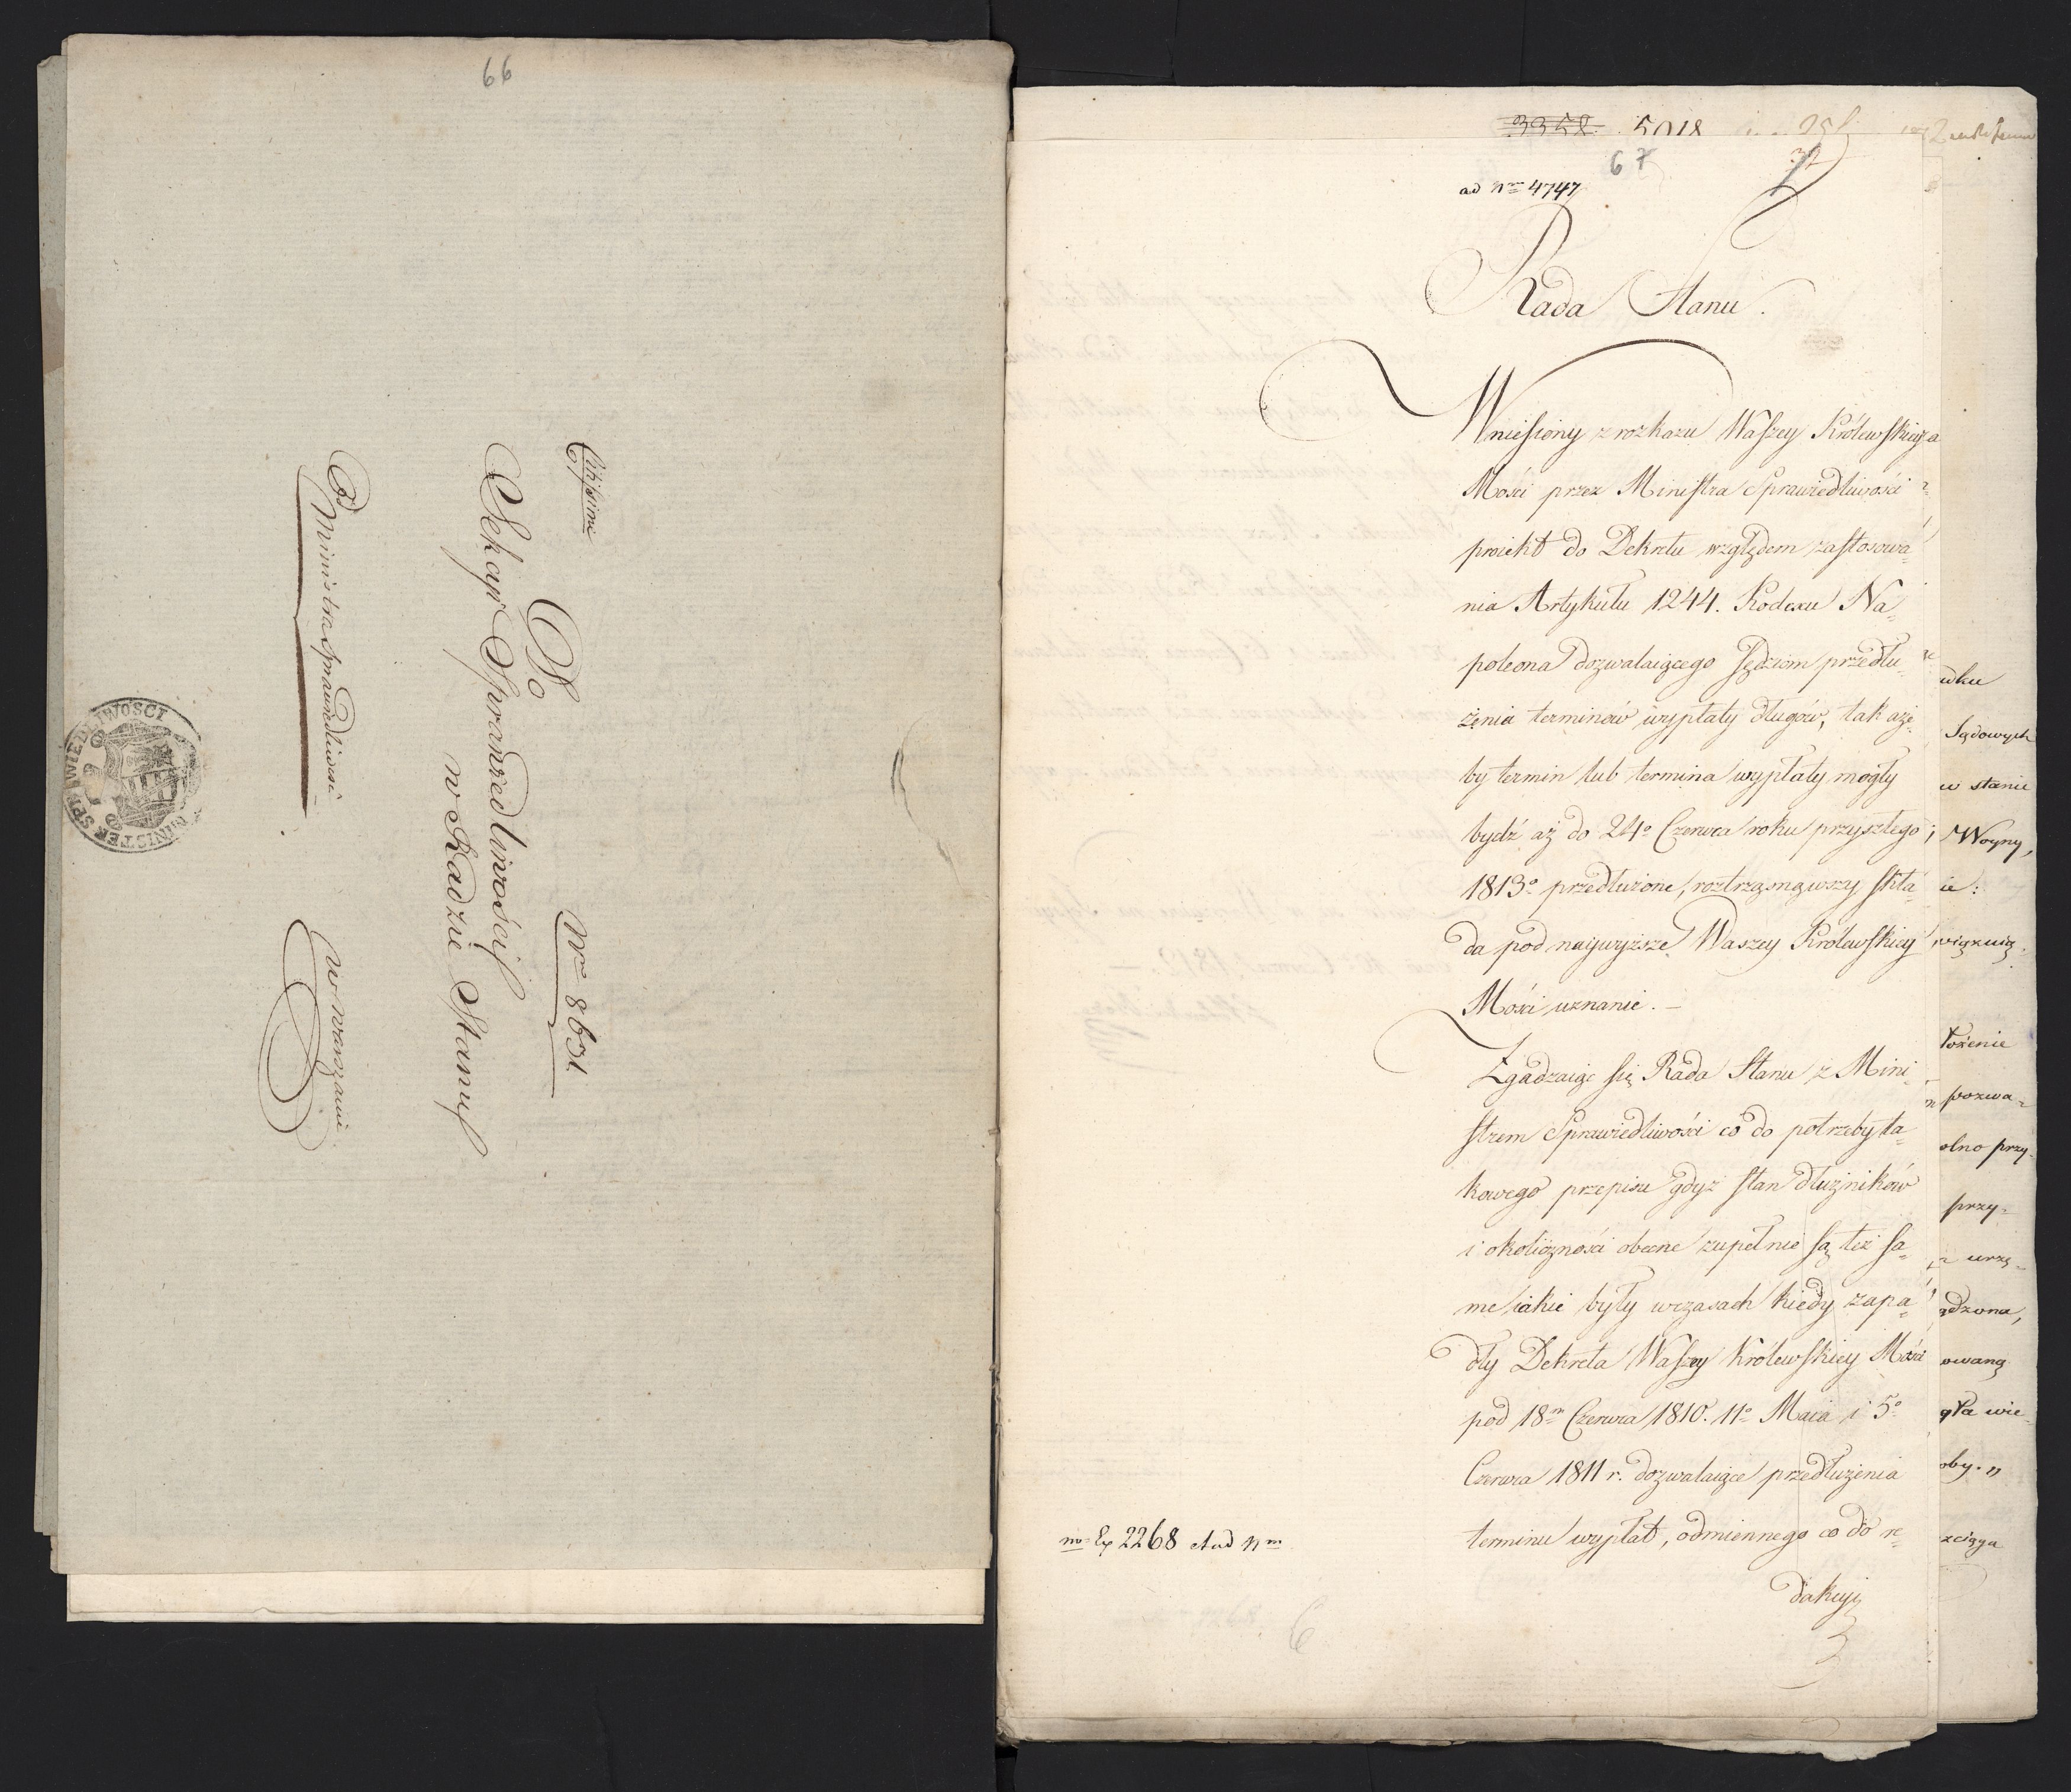 66
Citissime
Do Nro 8631
Sekcyi Sprawiedliwości
w Radzie Stanu
Od Ministra Sprawiedliwości
w Warszawie
MINISTER SPRAWIEDLIWOSCI
3358 5018
67
ad Nrm 4747
Rada Stanu.
Wniesiony z rozkazu Waszey Królewskiey
Mości przez Ministra Sprawiedliwości
proiekt do Dekretu względem zastosowa=
nia Artykułu 1244. Kodexu Na=
poleona dozwalaiącego sędziom przedłu=
żenia terminów wypłaty długów, tak aże=
by termin lub termina wypłaty mogły
bydź aż do 24o Czerwca roku przyszłego
1813o przedłużone, roztrząsnąwszy skła=
da pod naywyższe Waszey Królewskiey
Mości uznanie. —
Zgadzaiąc się Rada Stanu z Mini=
strem Sprawiedliwości co do potrzeby ta=
kowego przepisu gdyż stan dłużników
i okoliczności obecne zupełnie są też sa=
me iakie były wczasach kiedy zapa=
dły Dekreta Waszey Królewskiey Mości
pod 18m Czerwca 1810. 11o Maia i 5o
Czerwca 1811 r. dozwalaiące przedłużenia
terminu wypłat, odmiennego co do re=
dakcyi
no Ex 2268 et ad Nm
6
wku
Sądowych
w stanie
Woyny,
ie:
wiązuią
łożenie
pozwa=
olno przy=
przy=
urzę=
ądzona,
owaną
gła wie
oby. "
zciąga